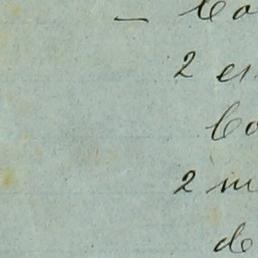 — Co
2 en
Co
2 m
de